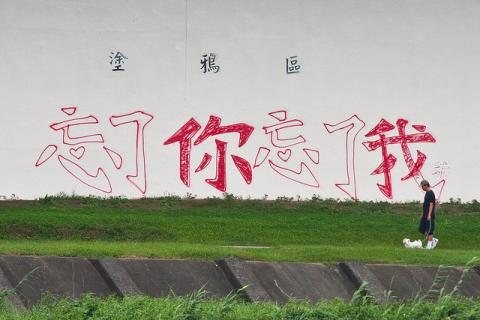 塗鴉區
忘了你忘了我